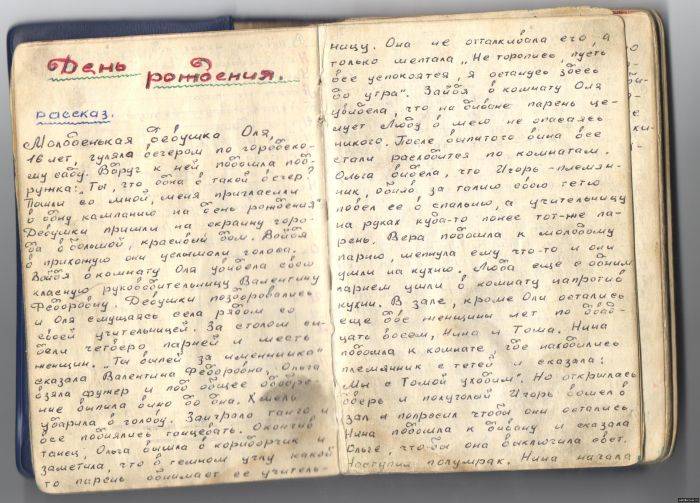 День
рождения.
рассказ.
Молоденькая девушка Оля,
16 лет, гуляла вечером по городско-
му саду. Вдруг к ней подошла под-
ружка: „Ты, что одна в такой вечер?
Пошли со мной, меня пригласили
в одну кампанию на день рождения"
Девушки пришли на окраину горо-
да в большой, красивый дом. Войдя
в прихожую они услышали голоса.
Войдя в комнату Оля увидела свою
класную руководительницу Валентину
Федоровну. Девушки поздоровались
и Оля смущаясь села рядом со
своей учительницей. За столом си-
дели четверо парней и шесть
женщин. „Ты выпей за именинника"
сказала Валентина Федоровна. Ольга
взяла фужер и под общее одобре-
ние выпила вино до дна. Хмель
ударила в голову. Заиграло танго и
все поднялись танцевать. Окончив
танец, Ольга вышла в коридорчик и
заметила, что в темном углу какой
то парень обнимает ее учитель-
ницу. Она не отталкивала его, а
только шептала „Не торопись, пусть
все успокоятся, я останусь здесь
до утра". Зайдя в комнату Оля
увидела, что на диване парень це-
лует Любу в шею не опасаясь
никого. После выпитого вина все
стали расходится по комнатам.
Ольга видела, что Игорь - племян-
ник, обняв за талию свою тетю
повел ее в спальню, а учительницу
на руках куда-то понес тот-же па-
рень. Вера подошла к молодому
парню, шепнула ему что-то и они
ушли на кухню. Люба еще с одним
парнем ушли в комнату напротив
кухни. В зале, кроме Оли остались
еще две женщины лет по двад-
цать восем, Нина и Тома. Нина
подошла к комнате где находились
племянник с тетей и сказала:
Мы с Томой уходим". Но открылась
дверь и полуголый Игорь вошел в
зал и попросил чтобы они остались.
Нина подошла к дивану и сказала
Ольге, чтобы она выключила свет.
Наступил полумрак. Нина начала